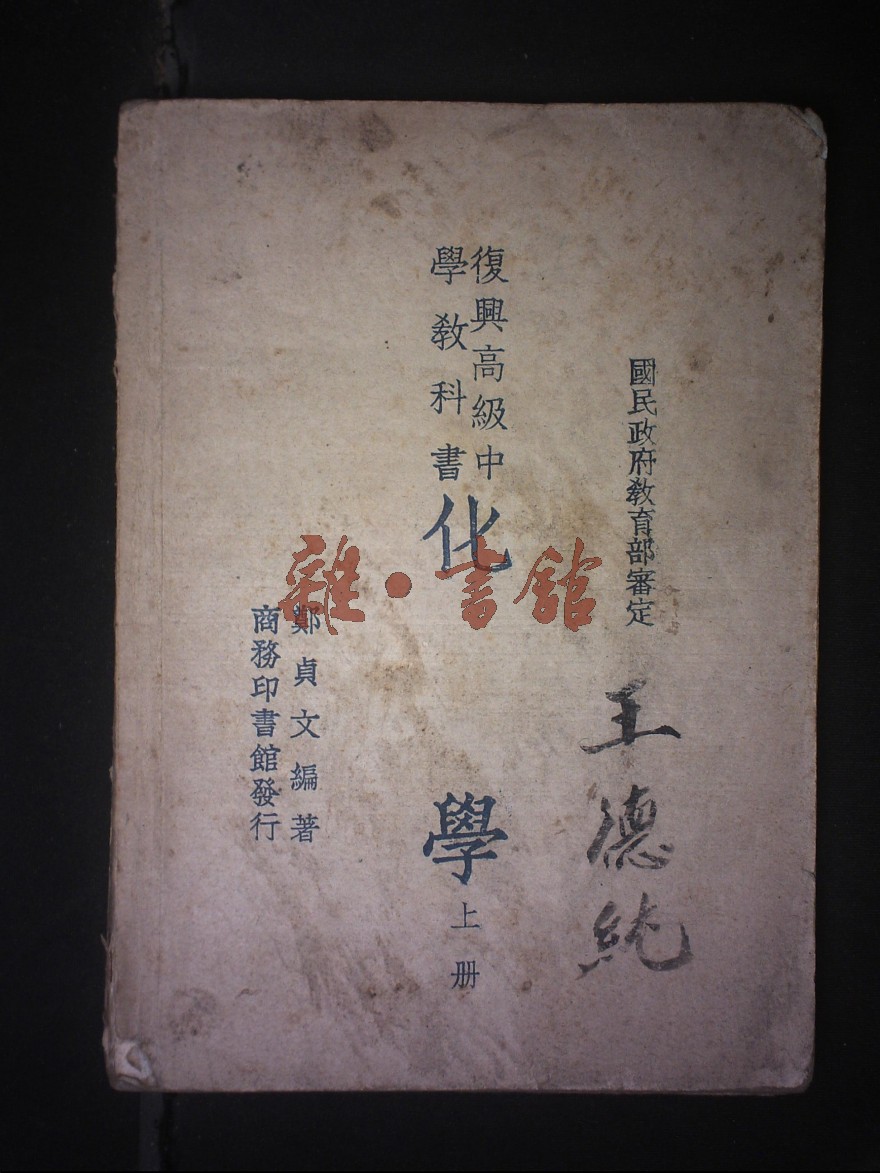 國民政府教育部審定
王德純
復興高級中
學教科書
化學上册
鄭貞文編著
商務印書館發行
雜·書館